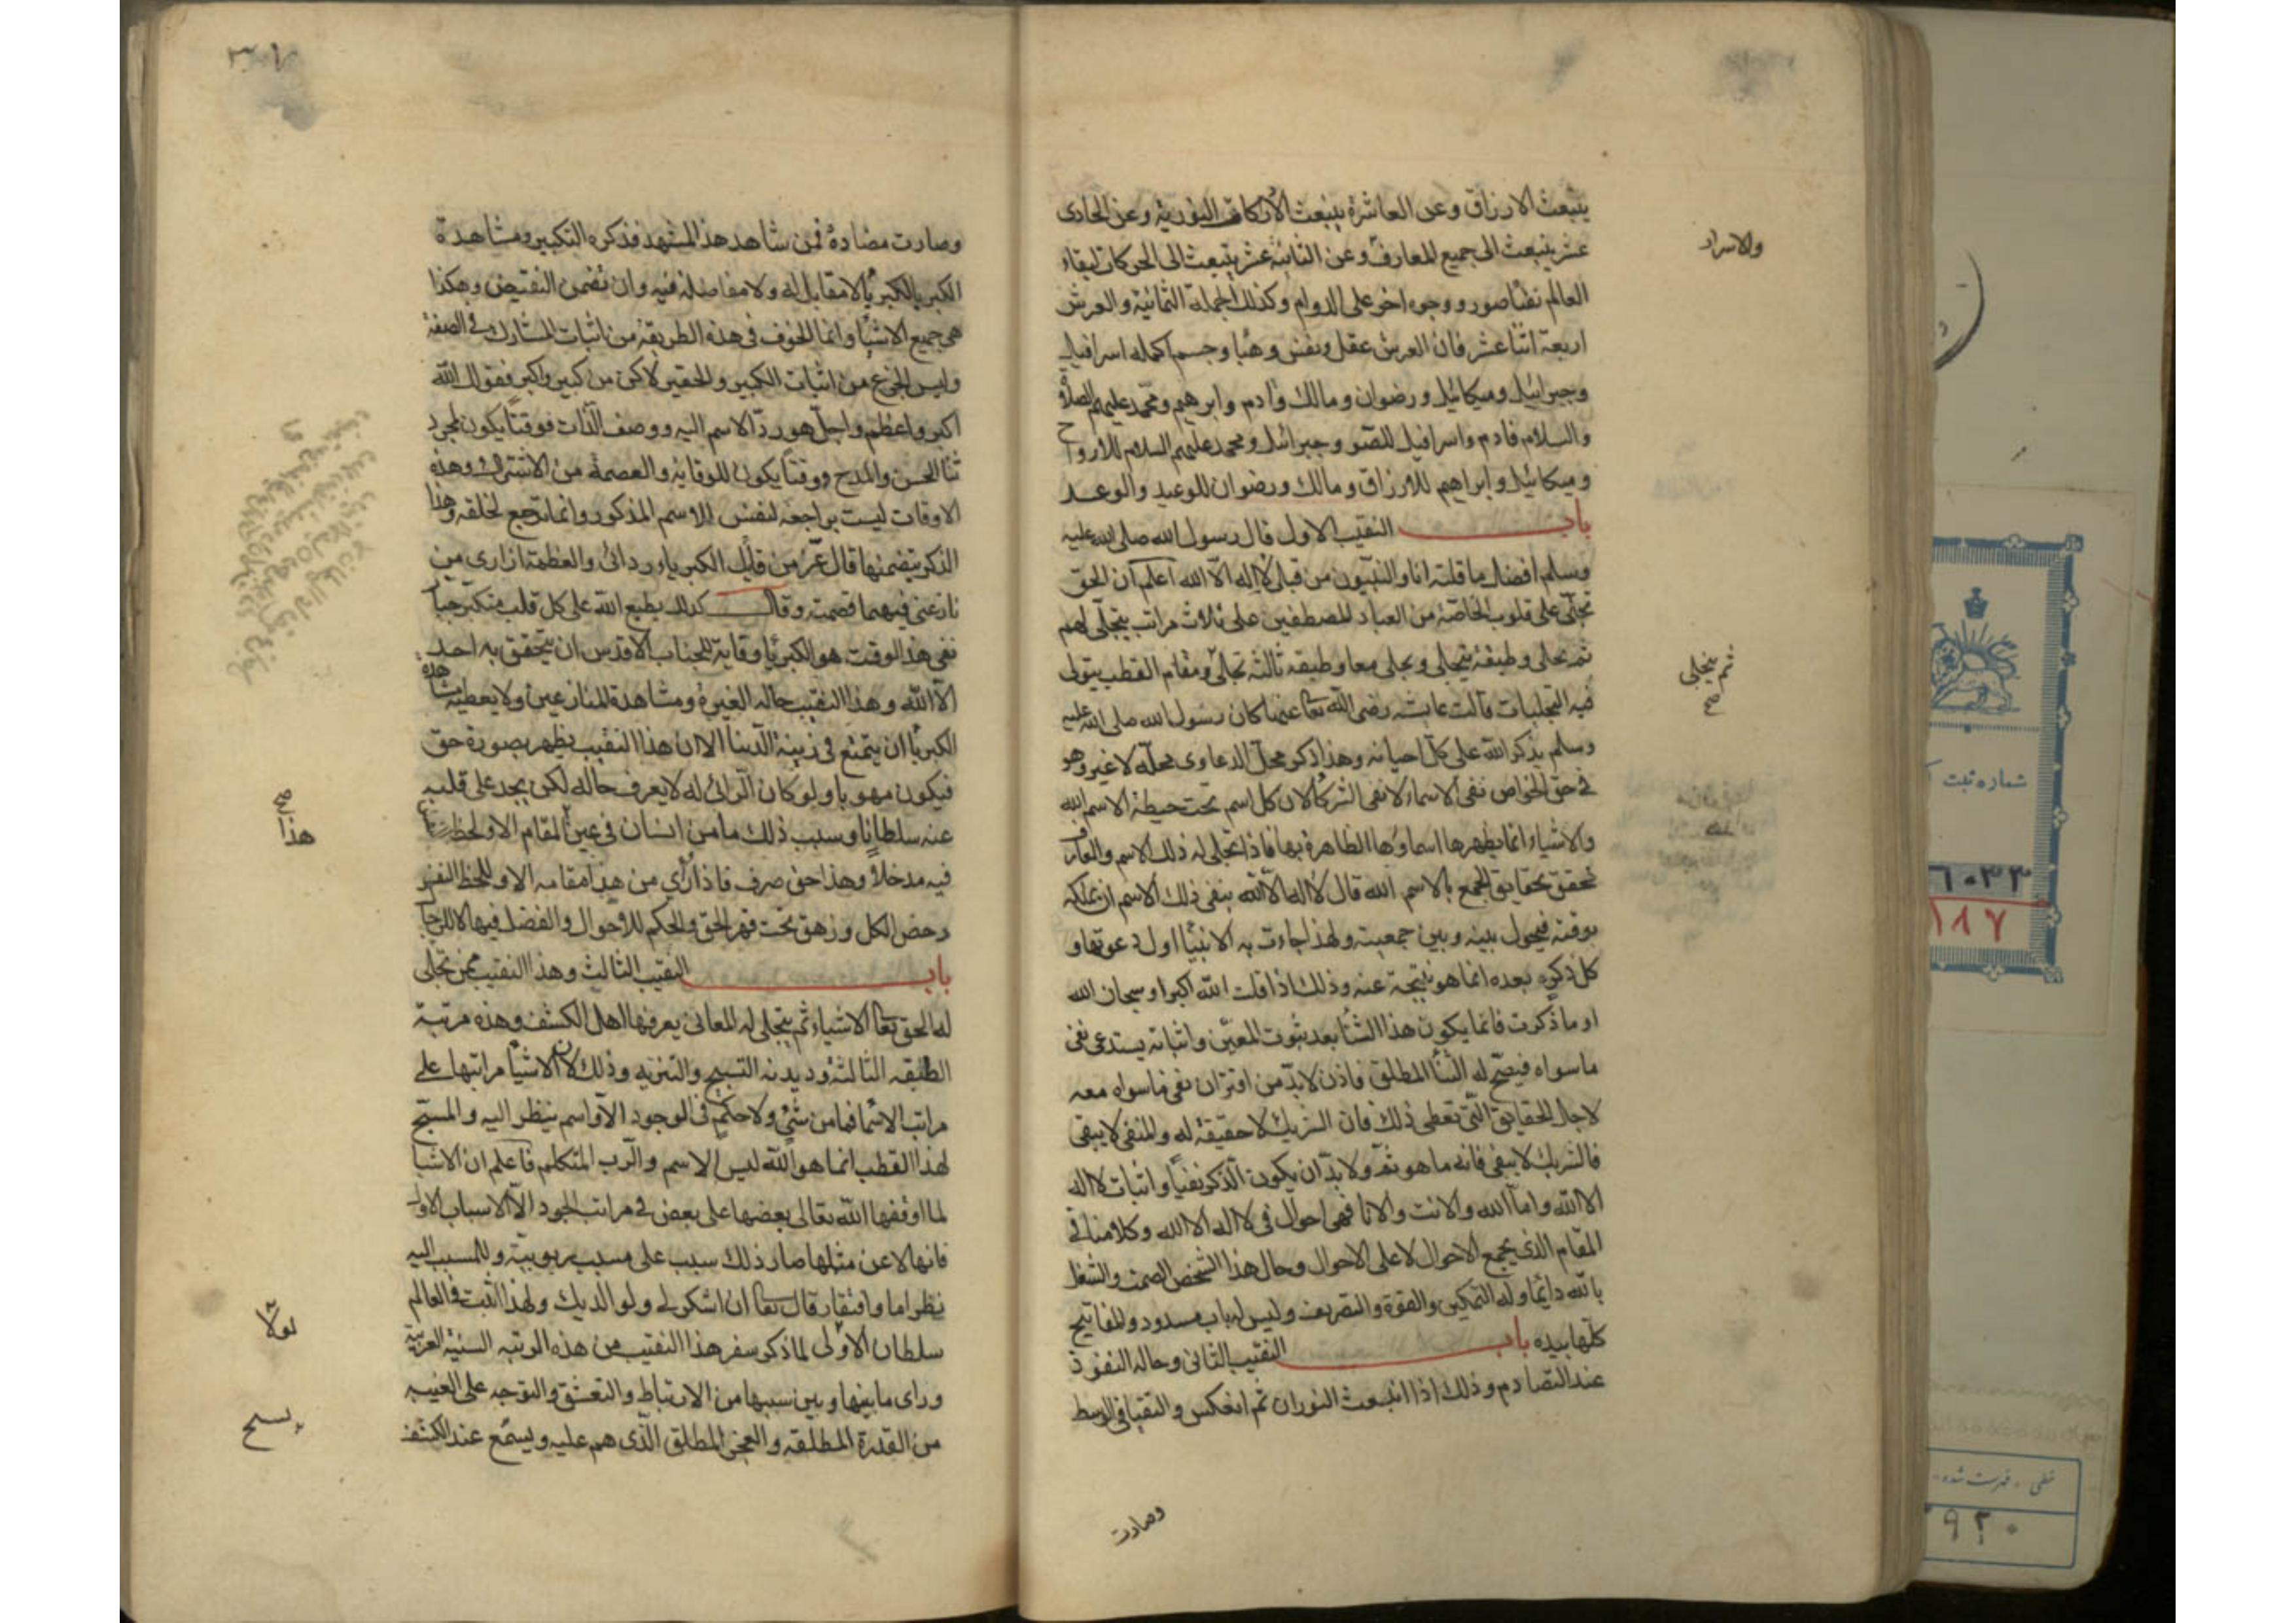 ينبعث الارزاق وعن العاشرة ينبعث الاركان النورية وعن الحادى
عشر ينبعث الى جميع المعارف وعن الثانية عشر ينبعث الى الحركات لبقاء
والاسرار
العالم نفثا صور ووجوه اخر على الدوام وكذلك الجملة الثمانية والعرش
اربعة اثنا عشر فان العرش عقل ونفس وهبا وجسم اكمله اسرافيل
وجبرائيل وميكائيل ورضوان ومالك وآدم وابرهيم ومحمد عليهم الصلاة
والسلام فادم واسرافيل للصور وجبرائيل ومحمد عليهم السلام للارواح
وميكائيل وابراهيم للارزاق ومالك ورضوان للوعيد والوعد
باب النقيب الاول قال رسول الله صلى الله عليه
وسلم افضل ما قلته انا والنبيون من قبلى لا اله الا الله اعلم ان الحق
تجلى على قلوب الخاصة من العباد المصطفين على ثلاث مراتب يتجلى لهم
ثم تجلى وطبقة يتجلى وتجلى معا وطبقه ثالثه تجلى ومقام القطب يتولى
ثم يتجلى
صح
فيه التجليات قالت عايشه رضى الله تعا عنها كان رسول الله صلى الله عليه
وسلم يذكر الله على كل احيانه وهذا ذكر محل الدعاوى محله لا غير وهو
فى حق الخواص نفى الاسماء لا نفى الشركا لان كل اسم تحت حيطة الاسم الله
والاشياء انما يظهرها اسماوها الظاهرة بها فاذا تجلى له ذلك الاسم والعارف
تحقق بحقايق الجمع بالاسم الله قال لا اله الا الله ينفى ذلك الاسم ان يملكه
بوقته فيحول بينه وبين جمعيته ولهذا جاءت به الانبيا اول دعوتها و
كل ذكره بعده انما هو نتيجة عنه وذلك اذا قلت الله اكبر او سبحان الله
او ما ذكرت فانما يكون هذا الثنا بعد ثبوت المعين واثباته يستدعى نفى
ما سواه فيصح له الثنا المطلق فاذن لا بد من اقتران نفى ما سواه معه
لاجل الحقايق التى تعطى ذلك فان الشريك لا حقيقة له والمنفى لا يبقى
فالشريك لا يبقى فانه ما هو ثم ولا بد ان يكون الذكر نفيا واثبات لا اله
الا الله واما الله والانت والانا فهى احوال فى لا اله الا الله وكلامنا فى
المقام الذى يجمع الاحوال لا على الاحوال وحال هذا الشخص الصمت والشغل
بالله دايما وله التمكين والقوة والتصريف وليس له باب مسدود والمفاتيح
كلها بيده باب النقيب الثانى وحاله النفوذ
عند التصادم وذلك اذا انبعث النوران ثم انعكس والتقيا فى الوسط
وصارت
وصارت مضادة فمن شاهد هذا المشهد فذكره التكبير ومشاهدة
الكبر بالكبريا لا مقابل له ولا مفاضله فيه وان تضمن النقيض وهكذا
هى جميع الاشيا وانما الخوف فى هذه الطريقة من اثبات المشارك فى الصفة
وليس الجزع من اثبات الكبير والحقير لاكن من كبير واكبر فقول الله
اكبر واعظم واجل هو رد الاسم اليه ووصف الذات فوقتا يكون لمجرد
ثنا الحسن والمدح ووقتا يكون للوقاية والعصمة من الاشتراك وهذه
الاوقات ليست براجعة لنفس الاسم المذكور وانما ترجع لخلقه وهذا
الذكر يتضمنها قال عز من قايل الكبرياء ردائى والعظمة ازارى من
نازعنى فيهما قصمته وقال كذلك يطبع الله على كل قلب متكبر جبار
ففى هذا الوقت هو الكبريا وقاية للجناب الاقدس ان يتحقق به احد
الا الله وهذا النقيب حاله الغيرة ومشاهدة المنازعين ولا يعطيه مشاهدة
الكبريا ان يتمتع فى زينة الدنيا الا ان هذا النقيب يظهر بصورة حق
فيكون مهوبا ولو كان الرائى له لا يعرف حاله لكن يجد على قلبه
صح
هذا
عنه سلطانا وسبب ذلك ما من انسان فى عين المقام الا ولحظ
فيه مدخلا وهذا حق صرف فاذا رأى من هذا مقامه الا و لحظ النفس
دحض الكل وزهق تحت قهر الحق والحكم للاحوال والفضل فيها للرجال
باب النقيب الثالث وهذا النقيب ممن تجلى
له الحق تعا الاشياء ثم يتجلى له المعانى يعرفها اهل الكشف وهذه مرتبة
الطبقه الثالثه وديدنه التسبيح والتنزيه وذلك لان الاشيا مراتبها على
مراتب الاسما فما من شئ ولا حكم فى الوجود الا واسم ينظر اليه والمسبح
لهذا القطب انما هو الله ليس الاسم والرب المتكلم فاعلم ان الاشيا
لما اوقفها الله تعالى بعضها على بعض فى مراتب الوجود الا الاسباب الاول
فانها لا عن مثلها صار ذلك سبب على مسبب بربوبيته وللمسبب اليه
نظر اما وافتقار قال تعا ان اشكر لى ولوالديك ولهذا اثبت فى العالم
لولا
سلطان الاولى لما ذكر سفر هذا النقيب من هذه المرتبه السنية العربية
وراى ما بينها وبين سببها من الارتباط والتعشق والتوجه على الغيبه
يسبح
من القدرة المطلقه والعجز المطلق الذى هم عليه ويسمع عند الكشف
شماره ثبت
٦٠٣٣
١٨٧
خطى - فهرست شده